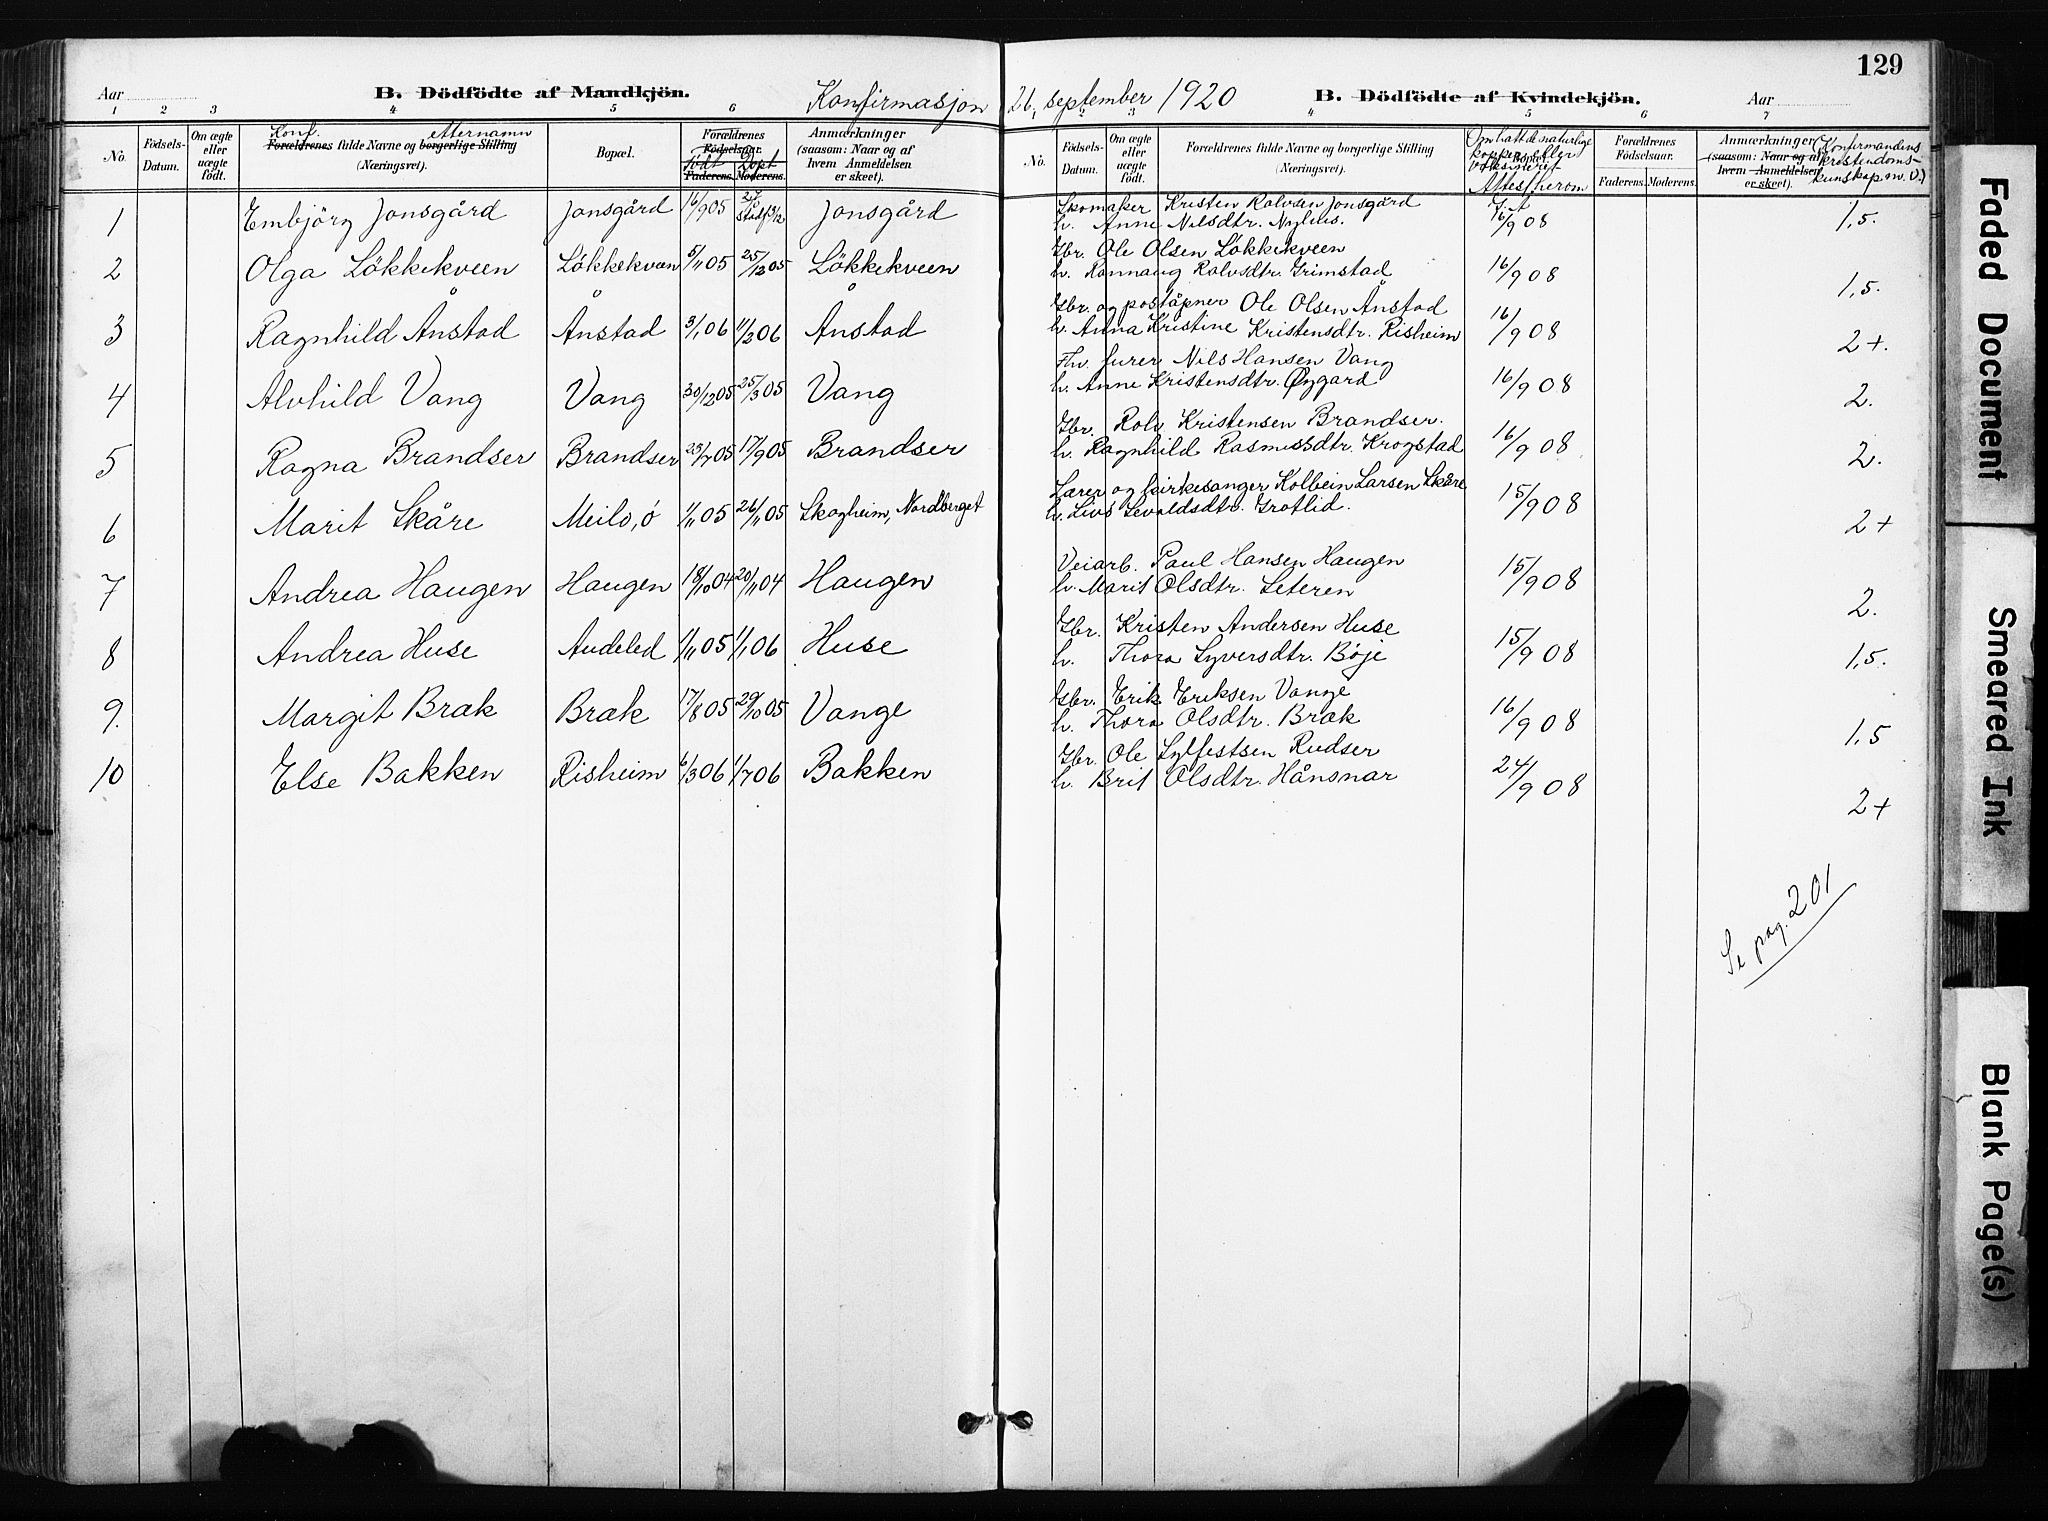 129
Aar
B. Dödfödte af Mandkjön.
Konfirmasjon 26. september 1920
B. Dödfödte af Kvindekjön.
Aar
1 2 3 4 5 6
1 2 3 5 6 7
No. Födsels-Datum. Om ægte eller uægte födt. Forældrenes fulde Navne og borgerlige Stilling (Næringsvei). Bopæl. Forældrenes Födselsaar. Faderens. Moderens. Anmærkninger (saasom: Naar og af hvem Anmeldelsen er skeet).
Konf. etternamn
födt Döpt
No. Födsels-Datum. Om ægte eller uægte födt. Forældrenes fulde Navne og borgerlige Stilling (Næringsvei). Bopæl. Forældrenes Födselsaar. Faderens. Moderens. Anmærkninger (saasom: Naar og af hvem Anmeldelsen er skeet).
Om hatt de naturlige kopper eller vaksinert Attest herom
(Konfirmandens kristendoms-kunskap m.v.)
1 Embjörg Jonsgård Jonsgård 16/9 05 Stadf 3/12 Jonsgård
Skomaker Kristen Rolvsen Jonsgård
h. Anne Nilsdtr. Nyhus. 16/9 08 1,5.
2 Olga Lökkekveen Lökkekveen 5/11 05 25/12 05 Lökkekveen
Gbr. Ole Olsen Lökkekveen
h. Rannaug Rolvsdtr. Grimstad 16/9 08 1,5.
3 Ragnhild Ånstad Ånstad 3/1 06 11/2 06 Ånstad
Gbr. og poståpner Ole Olsen Ånstad
h. Anna Kristine Kristensdtr. Risheim 16/9 08 2+.
4 Alvhild Vang Vang 30/12 05 25/3 05 Vang
Fhv. furer Nils Hansen Vang
h. Anne Kristensdtr. Øygard 16/9 08 2.
5 Ragna Brandser Brandser 23/7 05 17/9 05 Brandser
Gbr. Rolv Kristensen Brandser.
h. Ragnhild Rasmusdtr. Krogstad 16/9 08 2.
6 Marit Skåre Meilo, ö 1/11 05 26/11 05 Skogheim, Nordberget
Lærer og kirkesanger Kolbein Larsen Skåre
h. Livö Sevaldsdtr. Grotlid. 15/9 08 2+
7 Andrea Haugen Haugen 18/10 04 20/11 04 Haugen
Veiarb. Paul Hansen Haugen
h. Marit Olsdtr. Seteren 15/9 08 2.
8 Andrea Huse Audeled 1/11 05 1/1 06 Huse
Gbr. Kristen Andersen Huse
h. Thora Syversdtr. Böje 15/9 08 1,5.
9. Margit Brak Brak 17/8 05 29/10 05 Vange
Gbr. Erik Eriksen Vange
h. Thora Olsdtr. Brak 16/9 08 1,5
10 Else Bakken Risheim 6/3 06 1/7 06 Bakken
Gbr. Ole Sylfestsen Rudser
h. Brit Olsdtr. Hånsnar 24/9 08 2+
Se pag. 201
Faded Document
Smeared Ink
Blank Page(s)